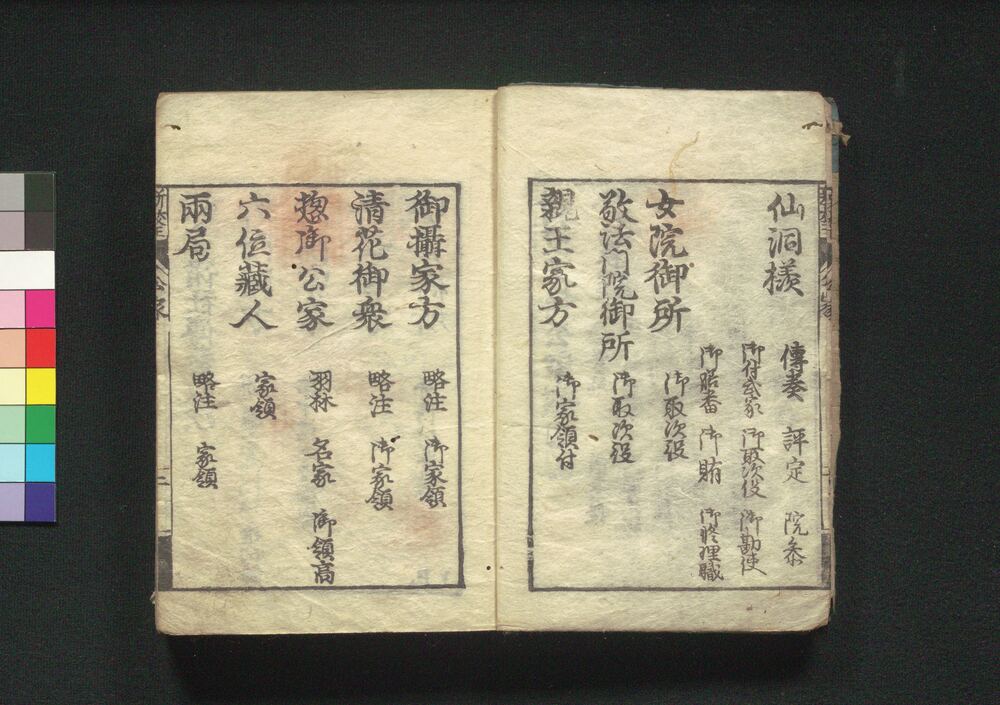 仙洞様
傳奏 評定 院参
御付武家 御取次役 御勘使
御賄番 御賄 御修理職
女院御所 御取次役
敬法門院御所 御取次役
親王家方 御家領付
御攝家方 略注 御家領
清花御衆 略注 御家領
惣御公家 羽林 名家 御領高
六位藏人 家領
兩局 略注 家領